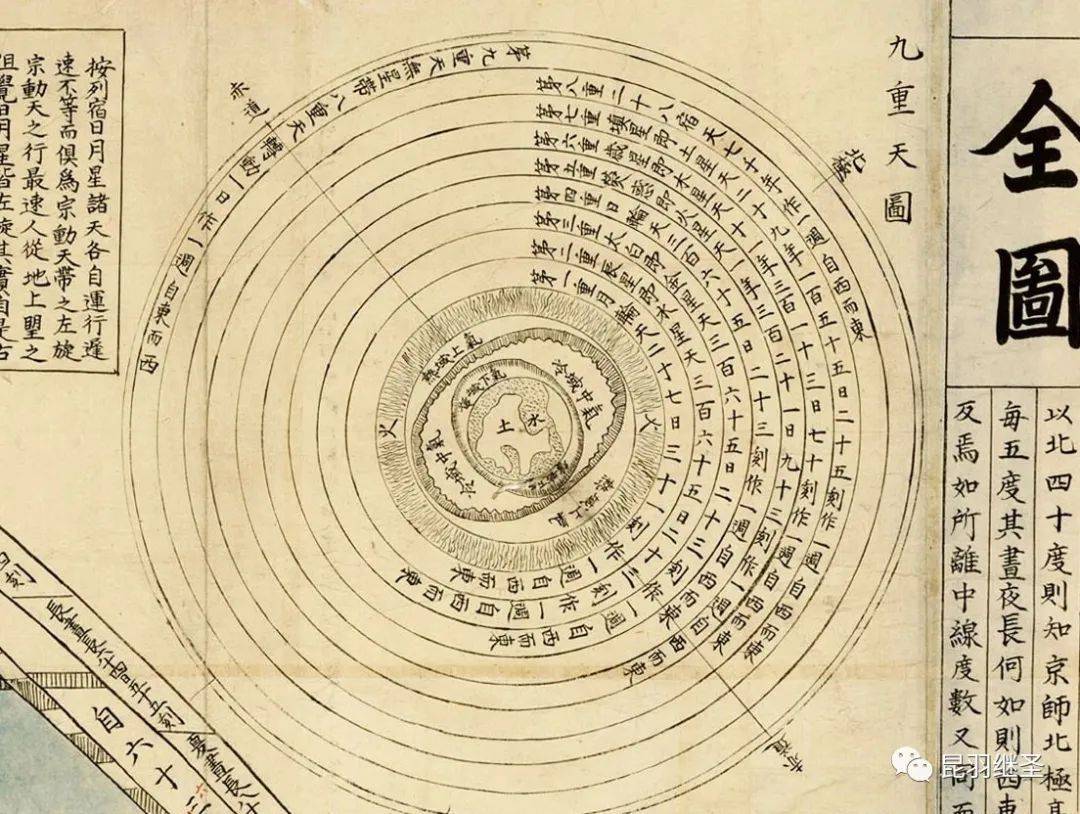 全圖
九重天圖
北極
赤道
第九重天無星帶八重天轉動一日作一週自東而西
第八重二十八宿天七十年作一週自西而東
第七重填星即土星天二十九年一百五十五日二十五刻作一週自西而東
第六重歲星即木星天十一年三百一十三日七十刻作一週自西而東
第五重熒惑即火星天一年三百二十一日九十三刻作一週自西而東
第四重日輪天三百六十五日二十三刻作一週自西而東
第三重太白即金星天三百六十五日二十三刻作一週自西而東
第二重辰星即水星天三百六十五日二十三刻作一週自西而東
第一重月輪天二十七日三十一刻作一週自西而東
火
火
熱域上氣
冷域中氣
煖域下氣
土
水
冷域中氣
熱域上氣
赤道
按列宿日月星諸天各自運行遲
速不等而俱為宗動天帶之左旋
宗動天之行最速人從地上望之
以北四十度則知京師北極高
每五度其晝夜長何如則西東
及焉如所離中線度數又同而
長晝長八十四刻五刻
自六十
昆羽继圣